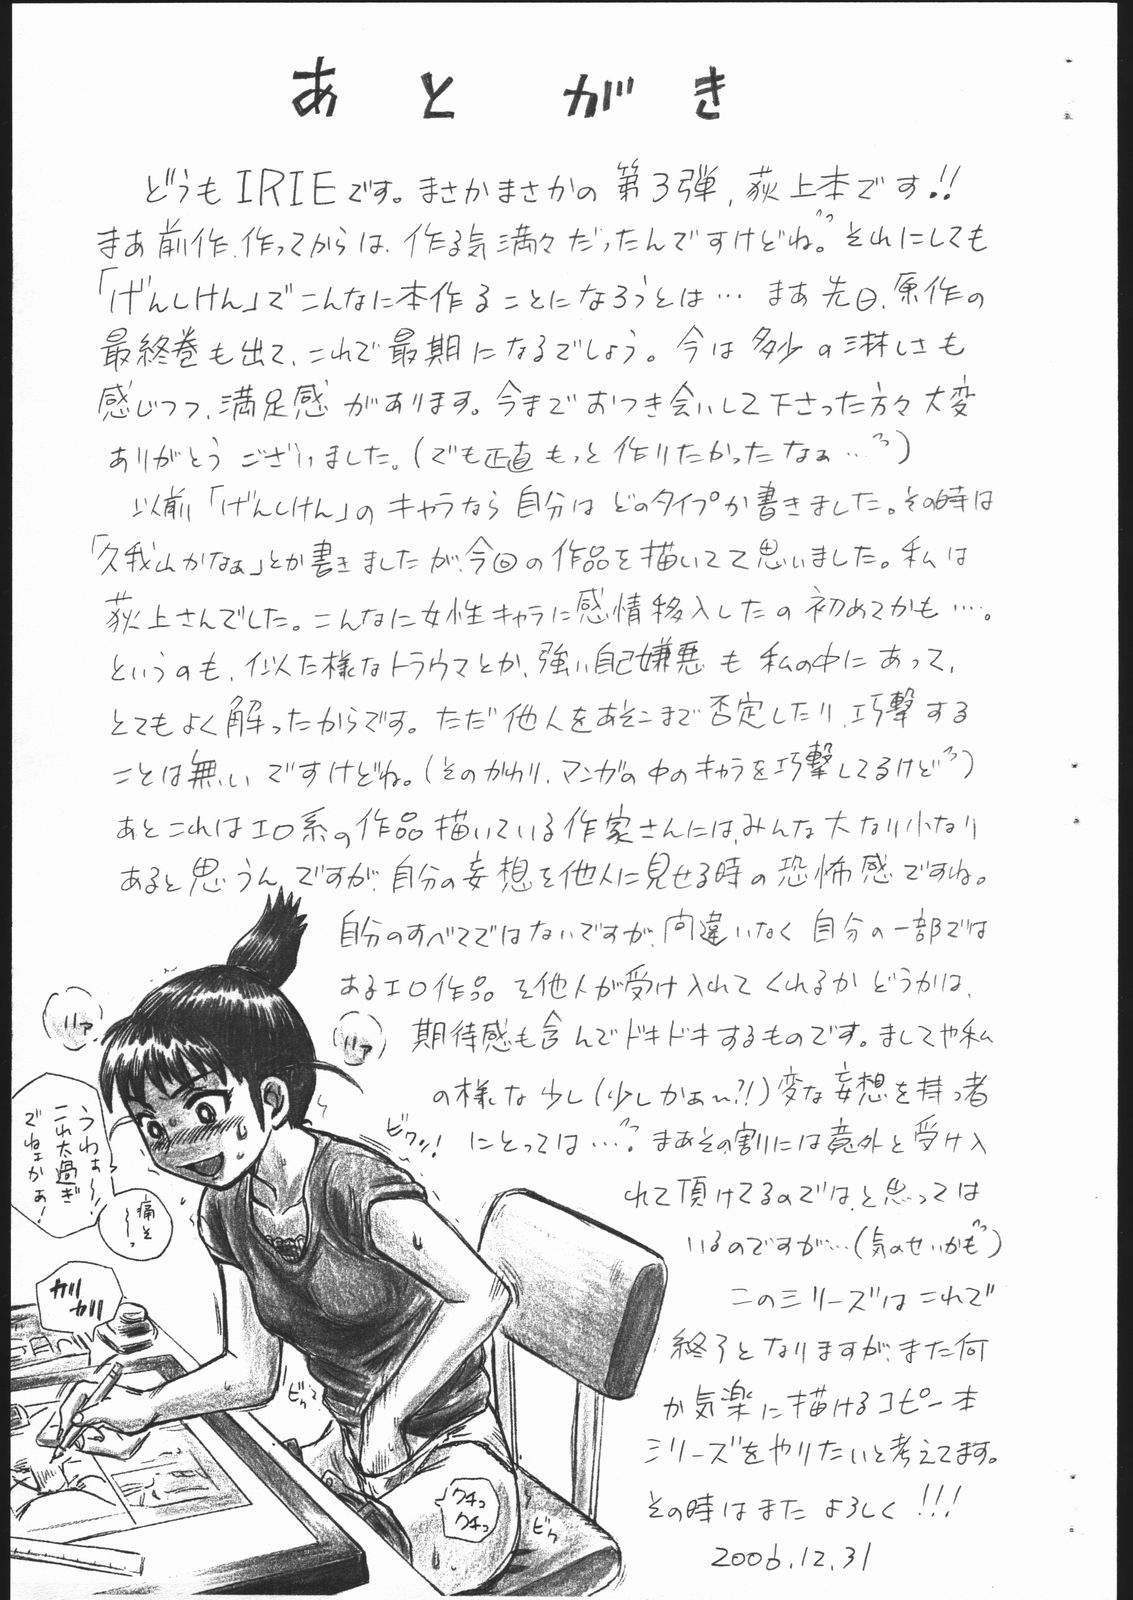 あとがき
どうもIRIEです。まさかまさかの第3弾、荻上本です!!
まあ前作、作ってからは、作る気満々だったんですけどね。それにしても
「げんしけん」でこんなに本作ることになろうとは… まあ先日、原作の
最終巻も出て、これで最期になるでしょう。今は多少の淋しさも
感じつつ、満足感があります。今までおつき合いして下さった方々大変
ありがとうございました。(でも正直もっと作りたかったなぁ…)
以前「げんしけん」のキャラなら自分はどのタイプか書きました。その時は
「久我山かなぁ」とか書きましたが、今回の作品を描いてて思いました。私は
荻上さんでした。こんなに女性キャラに感情移入したの初めてかも…。
というのも、似た様なトラウマとか、強い自己嫌悪も私の中にあって、
とてもよく解ったからです。ただ他人をあそこまで否定したり、巧撃する
ことは無いですけどね。(そのかわり、マンガの中のキャラを巧撃してるけど)
あとこれはエロ系の作品描いている作家さんには、みんな大なり小なり
あると思うんですが、自分の妄想を他人に見せる時の恐怖感ですね。
自分のすべてではないですが、間違いなく自分の一部では
あるエロ作品を他人が受け入れてくれるかどうかは、
期待感も含んでドキドキするものです。ましてや私
の様な少し(少しかぁ〜?!)変な妄想を持つ者
にとっては…。まあその割には意外と受け入
れて頂けてるのではと思っては
いるのですが…(気のせいかも)
このシリーズはこれで
終了となりますが、また何
か気楽に描けるコピー本
シリーズをやりたいと考えてます。
その時はまたよろしく!!!
2006.12.31
ハァ
ハァ
うわぁ〜!
これ太過ぎ
でねェかぁ!
痛そ
〜〜っ
カリ
カリ
ビクッ!
ビクッ
クチュ
クチュ
ビク